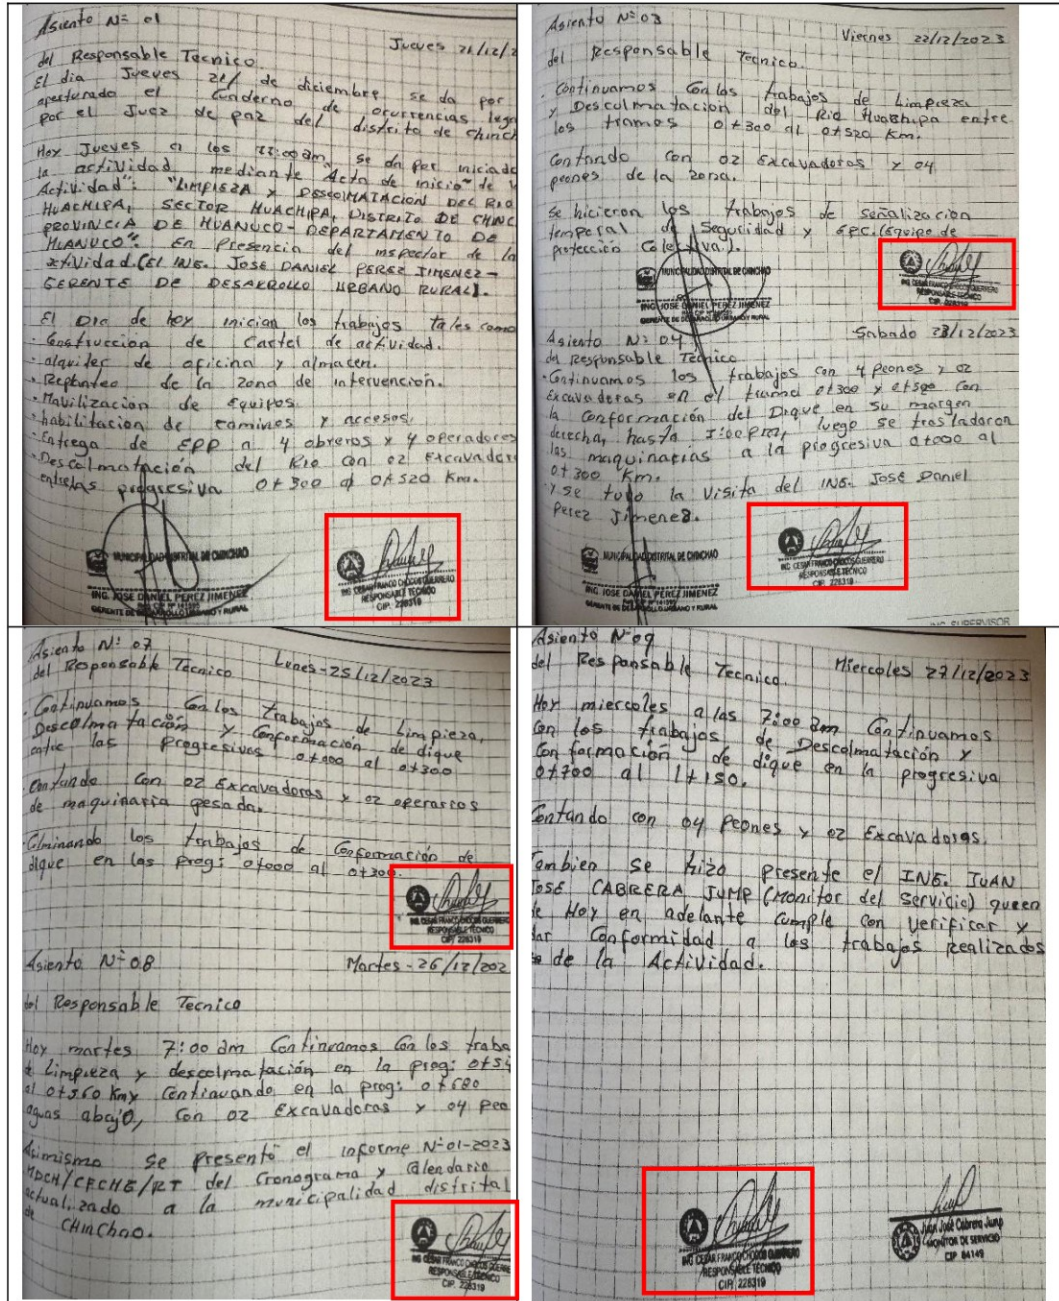 Asiento N= 01
Jueves 21/12/2
del Responsable Tecnico.
El dia Jueves 21/ de diciembre se da por
aperturado el Cuaderno de ocurrencias lega
por el Juez de paz del distrito de Chinch
Hoy Jueves a las 11:00am, se da por iniciado
la actividad mediante Acta de inicio de l
Actividad": "LIMPIEZA Y DESCOLMATACION DEL RIO
HUACHIPA, SECTOR HUACHIPA, DISTRITO DE CHINC
PROVINCIA DE HUANUCO - DEPARTAMENTO DE
HUANUCO". En Presencia del inspector de la
actividad.(EL ING. JOSE DANIEL PEREZ JIMENEZ -
GERENTE DE DESARROLLO URBANO RURAL).
El Dia de hoy inician los trabajos tales como
· Construcción de Cartel de actividad.
· alquiler de oficina y almacen.
· Replanteo de la zona de intervención.
· Movilizacion de Equipos.
· habilitacion de caminos y accesos.
· Entrega de EPP a 4 obreros y 4 operadores
· Descolmatación del Rio con 02 Excavador
entre las progresiva 0+300 al 0+520 Km.
MUNICIPALIDAD DISTRITAL DE CHINCHAO
ING. JOSE DANIEL PEREZ JIMENEZ
GERENTE DE DESARROLLO URBANO Y RURAL
ING. CESAR FRANCO CHOCOS GUERRERO
RESPONSABLE TÉCNICO
CIP. 228319
Asiento N=03
Viernes 22/12/2023
del Responsable Tecnico.
· Continuamos con los trabajos de Limpieza
y Descolmatación del Rio Huachipa entre
los tramos 0+300 al 0+520 Km.
Contando con 02 Excavadoras y 04
peones de la zona.
Se hicieron los trabajos de señalización
temporal de Seguridad y EPC.(Equipo de
protección Colectiva).
MUNICIPALIDAD DISTRITAL DE CHINCHAO
ING. JOSE DANIEL PEREZ JIMENEZ
GERENTE DE DESARROLLO URBANO Y RURAL
ING. CESAR FRANCO CHOCOS GUERRERO
RESPONSABLE TÉCNICO
CIP. 228319
Asiento N= 04
Sabado 23/12/2023
del Responsable Tecnico
· Continuamos los trabajos con 4 Peones y 02
Excavadoras en el tramo 0+300 y 0+520 con
la conformación del Dique en su margen
derecha, hasta 1:00pm, luego se trasladaron
las maquinarias a la progresiva 0+000 al
0+300 Km.
· Y se tuvo la Visita del ING. José Daniel
Perez Jimenez.
MUNICIPALIDAD DISTRITAL DE CHINCHAO
ING. JOSE DANIEL PEREZ JIMENEZ
GERENTE DE DESARROLLO URBANO Y RURAL
ING. CESAR FRANCO CHOCOS GUERRERO
RESPONSABLE TÉCNICO
CIP. 228319
ING. SUPERVISOR
Asiento N= 07
del Responsable Tecnico
Lunes-25/12/2023
· Continuamos Con los Trabajos de Limpieza,
Descolmatación y Conformación de dique
entre las progresivas 0+000 al 0+300
Contando Con 02 Excavadoras y 02 operarios
de maquinaria pesada.
Culminando los trabajos de Conformación de
dique en las prog: 0+000 al 0+300.
ING. CESAR FRANCO CHOCOS GUERRERO
RESPONSABLE TÉCNICO
CIP. 228319
Asiento N=08
Martes-26/12/202
del Responsable Tecnico
Hoy martes 7:00 am Continuamos Con los traba
de Limpieza y descolmatación en la prog: 0+54
al 0+560 Km y Continuando en la prog: 0+680
aguas abajo, con 02 Excavadoras y 04 peo
Asimismo se presentó el informe N=01-2023
MDCH/CFCHG/RT del Cronograma y Calendario
actualizado a la municipalidad distrital
de CHinChao.
ING. CESAR FRANCO CHOCOS GUERRE
RESPONSABLE TÉCNICO
CIP. 228319
Asiento N=09
del Responsable Tecnico.
Miercoles 27/12/2023
Hoy miercoles a las 7:00 am Continuamos
Con los trabajos de Descolmatación y
Conformación de dique en la progresiva
0+700 al 1+150.
Contando con 04 Peones y 02 Excavadoras.
Tambien se hizo presente el ING. JUAN
JOSÉ CABRERA JUMP (Monitor del Servicio) queen
de Hoy en adelante cumple con verificar y
dar Conformidad a los trabajos Realizados
de la Actividad.
ING. CESAR FRANCO CHOCOS GUERRERO
RESPONSABLE TÉCNICO
CIP. 228319
Juan José Cabrera Jump
MONITOR DE SERVICIO
CIP 84149